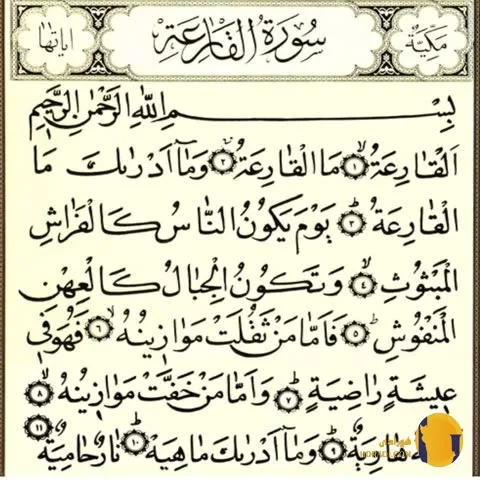 مكيّة سُورَةُ القَارِعَةِ اياتها
بِسْمِ اللهِ الرَّحْمٰنِ الرَّحِيمِ
اَلْقَارِعَةُ ١ مَا الْقَارِعَةُ ٢ وَمَآ اَدْرٰىكَ مَا
الْقَارِعَةُ ٣ يَوْمَ يَكُونُ النَّاسُ كَالْفَرَاشِ
الْمَبْثُوثِ ٤ وَتَكُونُ الْجِبَالُ كَالْعِهْنِ
الْمَنْفُوشِ ٥ فَاَمَّا مَنْ ثَقُلَتْ مَوَازِينُهُ ٦ فَهُوَ فِي
عِيشَةٍ رَاضِيَةٍ ٧ وَاَمَّا مَنْ خَفَّتْ مَوَازِينُهُ ٨
هَاوِيَةٌ ٩ وَمَآ اَدْرٰىكَ مَاهِيَهْ ١٠ نَارٌ حَامِيَةٌ ١١